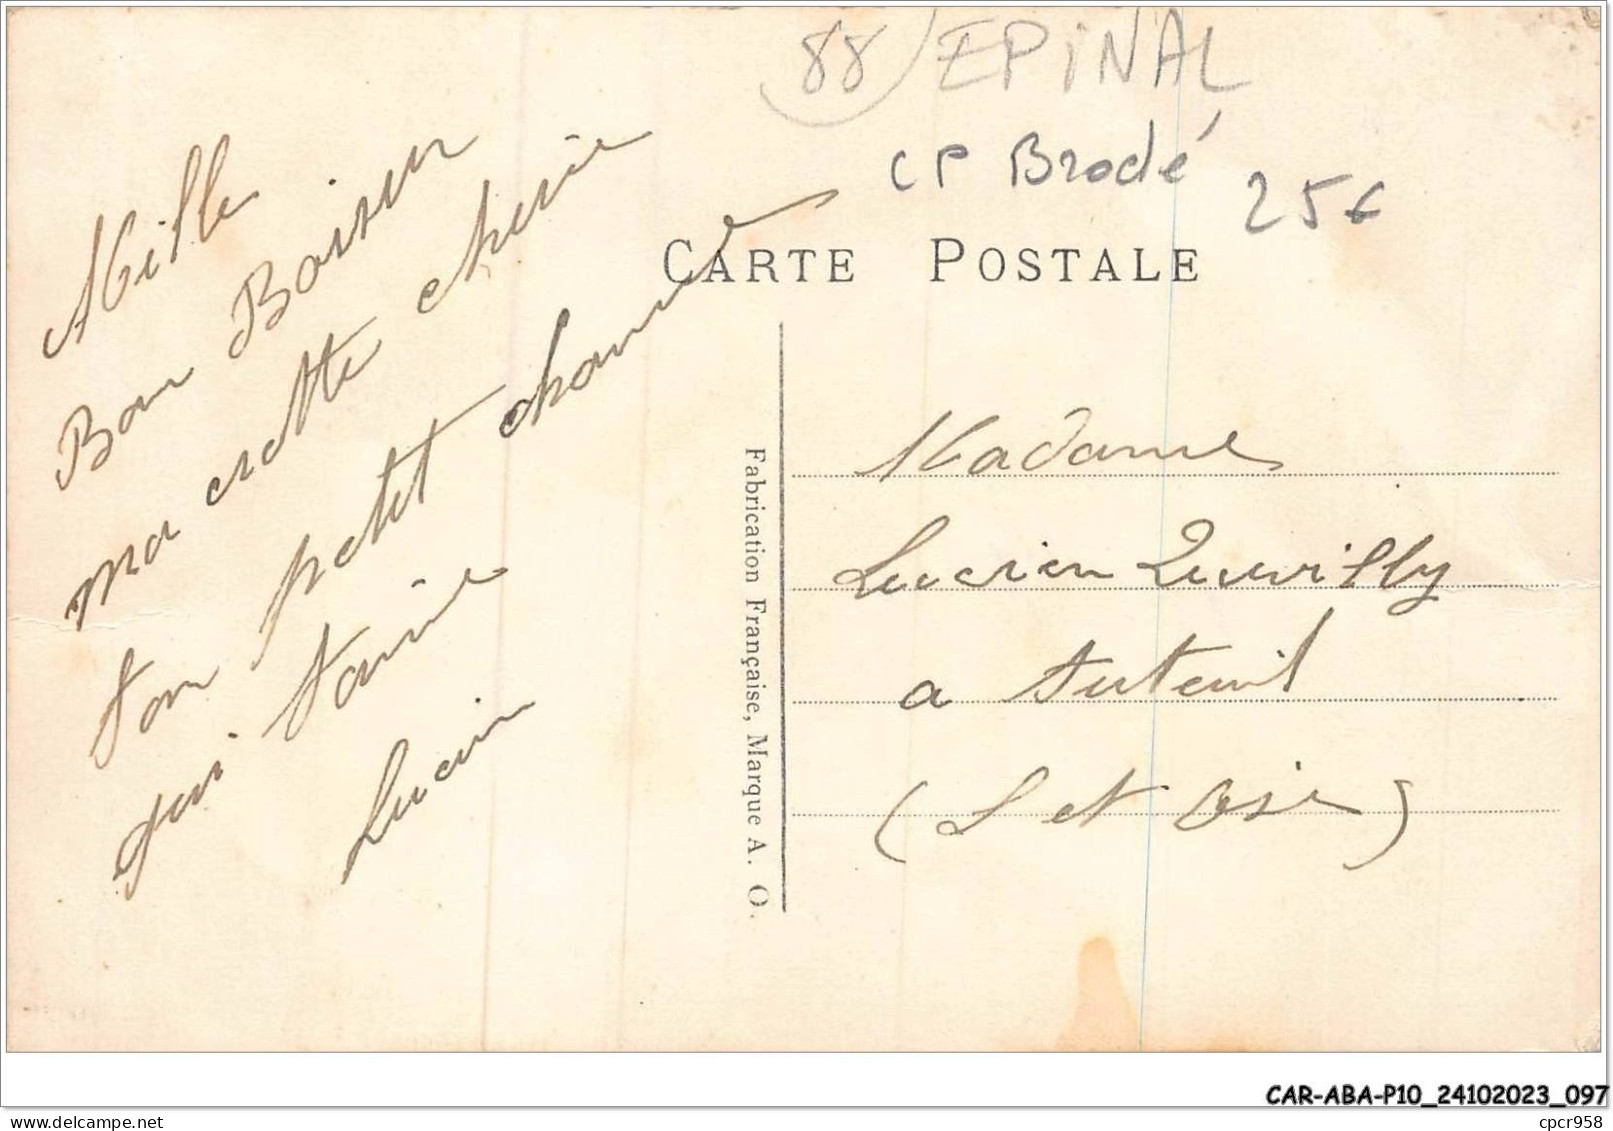 88 EPINAL
CP Brodé 25€
CARTE POSTALE
Mille
Bon Baiser
ma crotte cherie
ton petit
qui t'aime
Lucien
Fabrication Française, Marque A. O.
Madame
Lucien
a Auteuil
(S et Oise)
CAR-ABA-P10_24102023_097
cpcr958